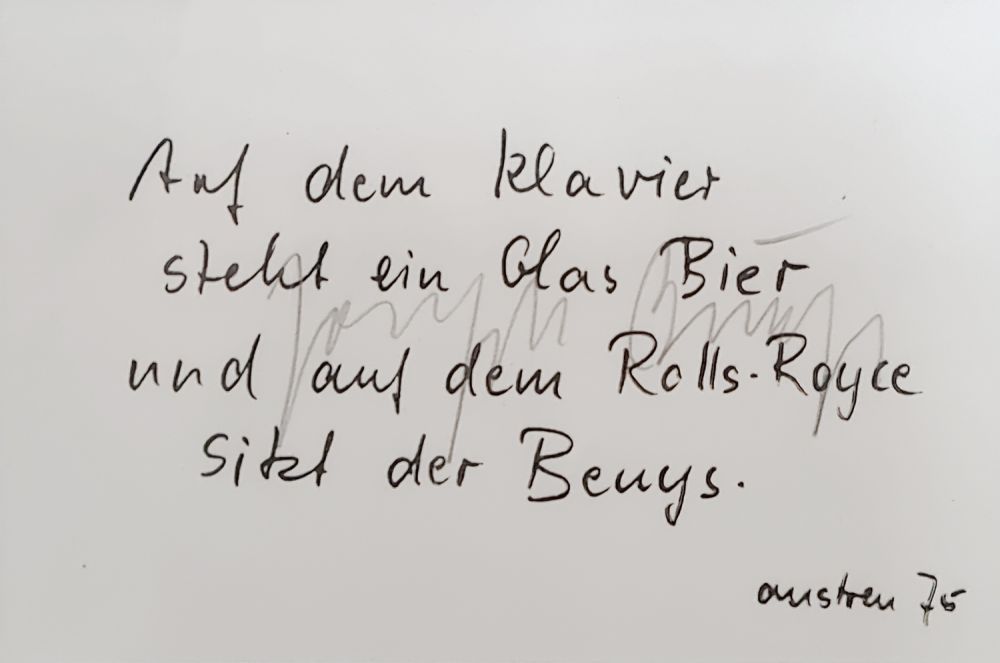 Auf dem Klavier
steht ein Glas Bier
und auf dem Rolls-Royce
sitzt der Beuys.
Joseph Beuys
75